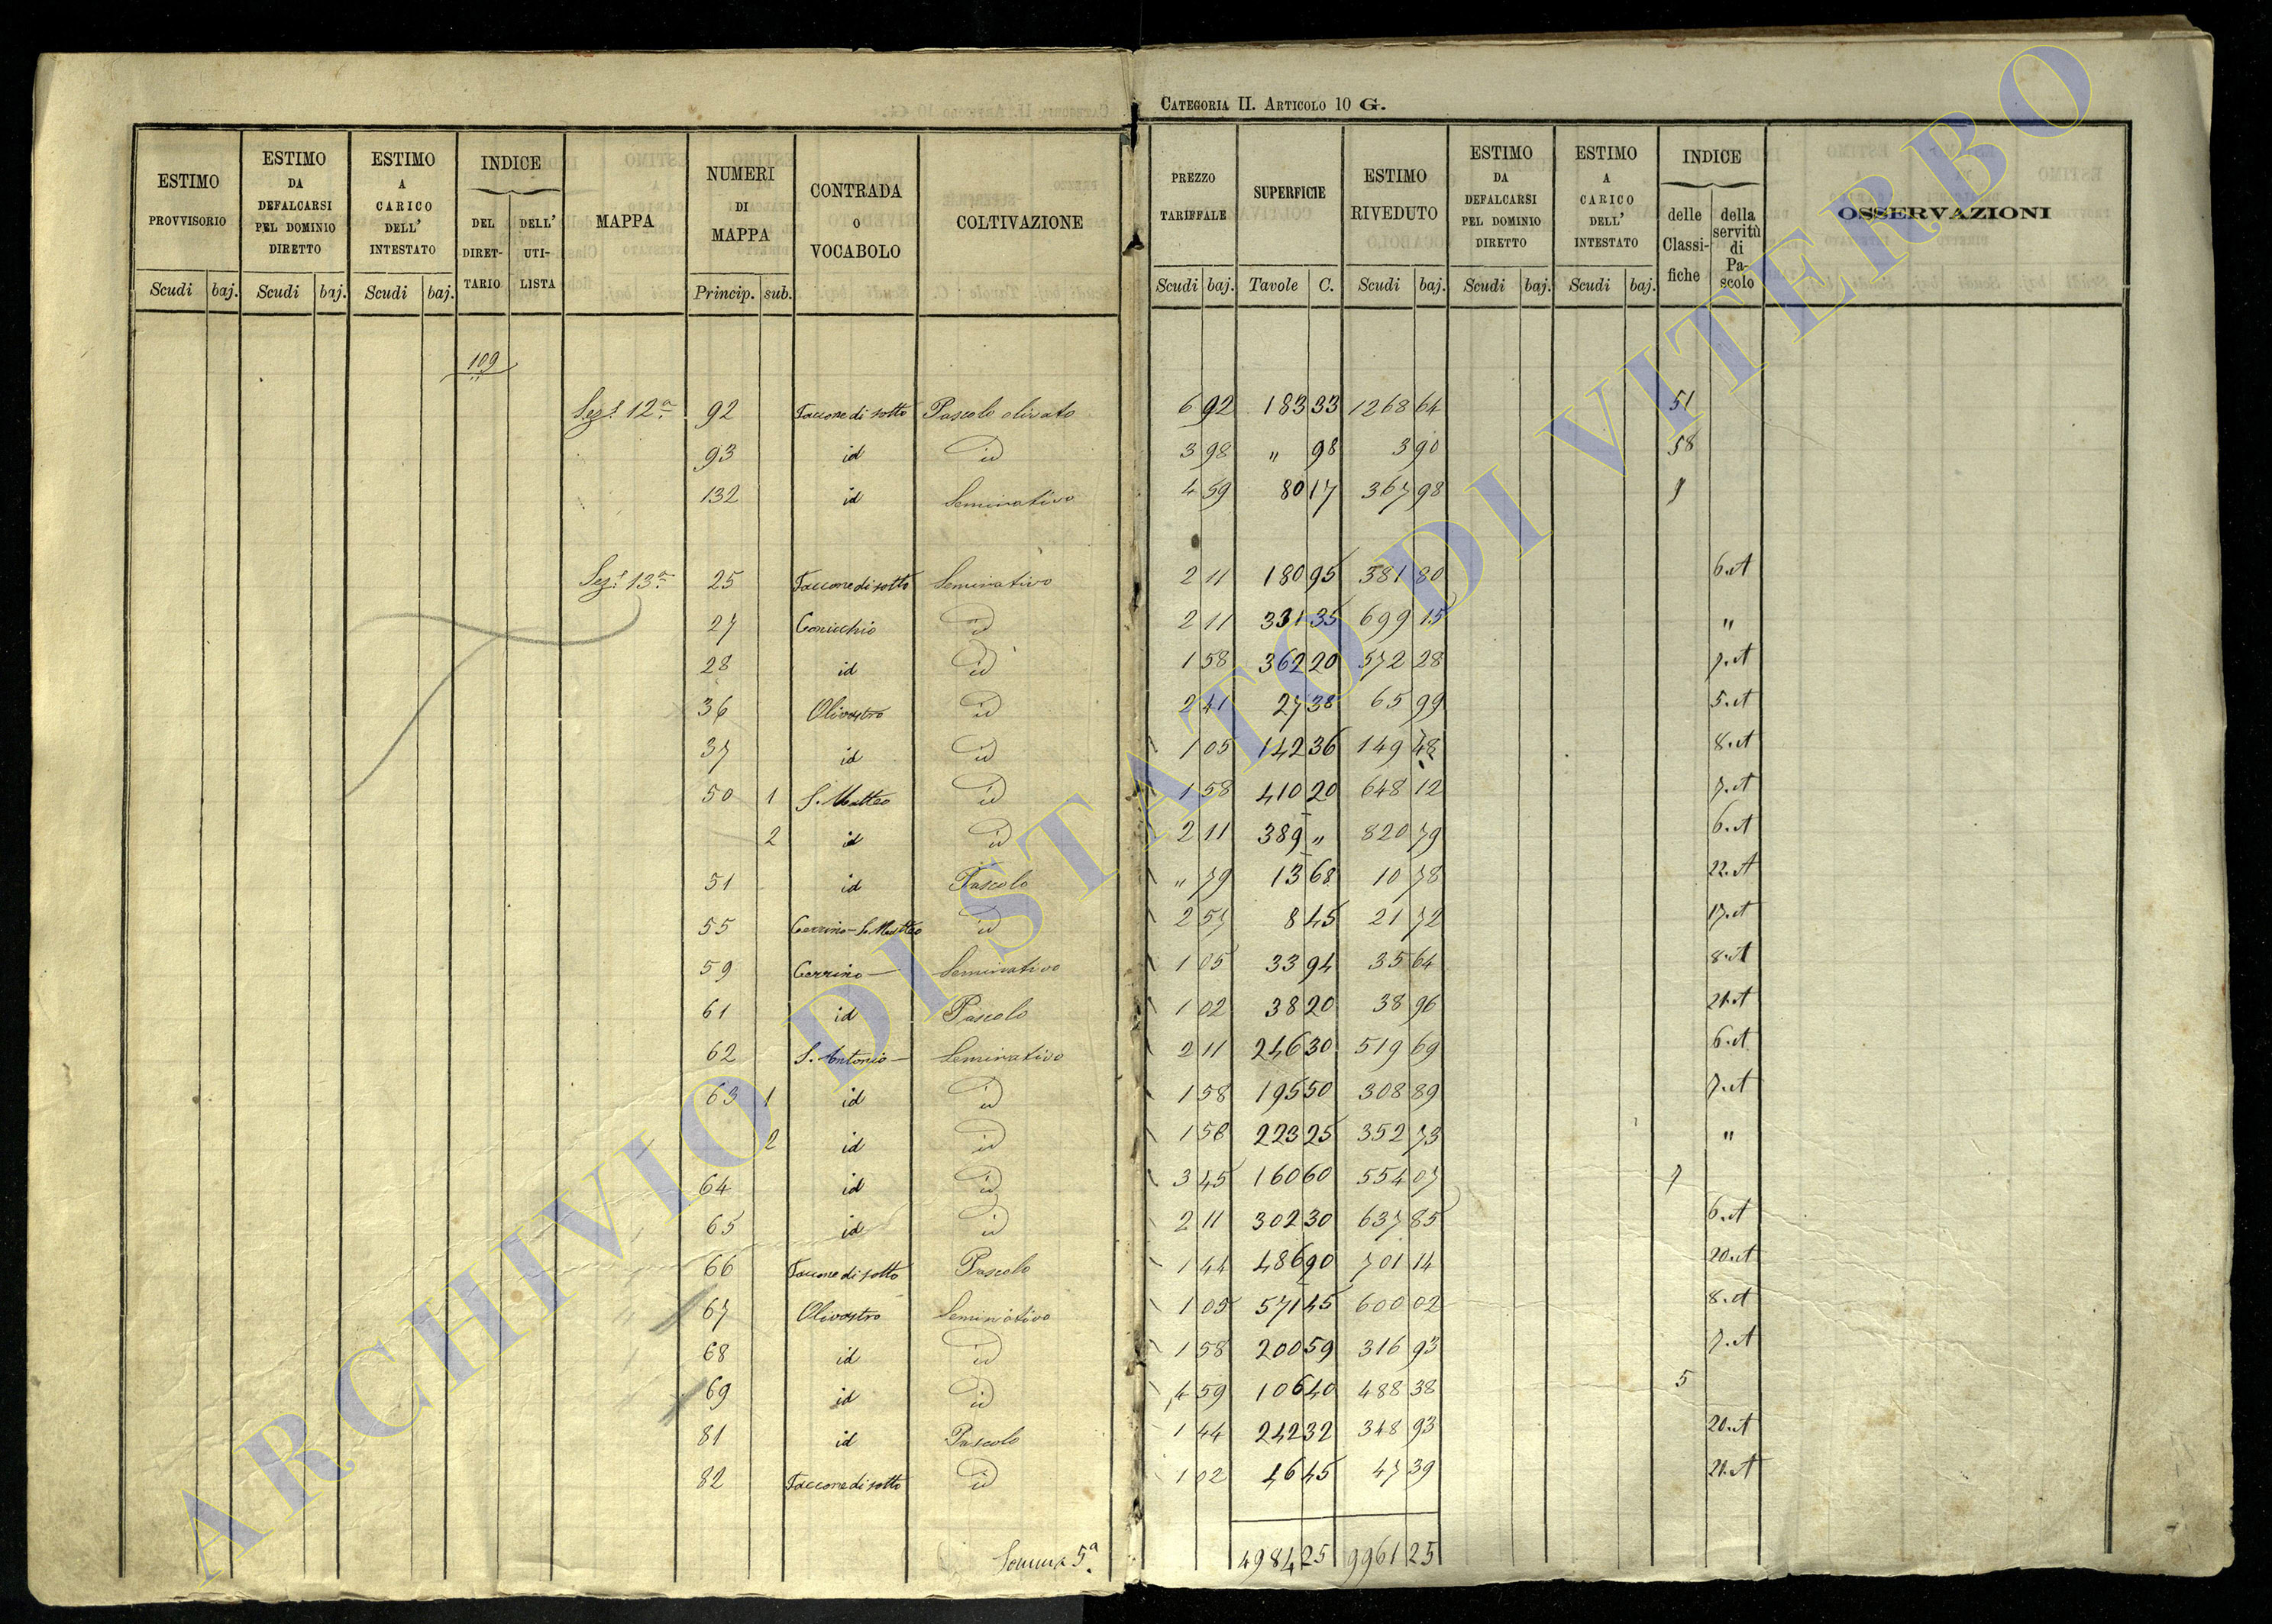 CATEGORIA II. ARTICOLO 10 G.
ESTIMO PROVVISORIO | ESTIMO DA DEFALCARSI PEL DOMINIO DIRETTO | ESTIMO A CARICO DELL' INTESTATO | INDICE DEL DIRETTARIO | DELL' UTILISTA | MAPPA | NUMERI DI MAPPA | CONTRADA O VOCABOLO | COLTIVAZIONE | PREZZO TARIFFALE | SUPERFICIE | ESTIMO RIVEDUTO | ESTIMO DA DEFALCARSI PEL DOMINIO DIRETTO | ESTIMO A CARICO DELL' INTESTATO | INDICE delle Classifiche | della servitù di Pascolo | OSSERVAZIONI
Scudi baj. Scudi baj. Scudi baj. Princip. sub. Scudi baj. Tavole C. Scudi baj. Scudi baj. Scudi baj.
109
Sez.e 12a 92 Taccone di sotto Pascolo olivato 6 92 183 33 1268 64 51
93 id id 3 98 " 98 3 90 58
132 id Seminativo 4 59 80 17 367 98
Sez.e 13a 25 Taccone di sotto Seminativo 2 11 180 95 381 80 6.A
27 Conicchio id 2 11 331 35 699 15 "
28 id id 1 58 362 20 572 28 7.A
36 Olivastro id 2 41 27 38 65 99 5.A
37 id id 1 05 142 36 149 48 8.A
50 1 S. Matteo id 1 58 410 20 648 12 7.A
2 id id 2 11 389 " 820 79 6.A
51 id Pascolo " 79 13 68 10 78 22.A
55 Cerrino - S. Matteo id 2 57 8 45 21 72 17.A
59 Cerrino - Seminativo 1 05 33 94 35 64 8.A
61 id Pascolo 1 02 38 20 38 96 21.A
62 S. Antonio - Seminativo 2 11 246 30 519 69 6.A
63 1 id id 1 58 195 50 308 89 7.A
2 id id 1 58 223 25 352 73 "
64 id id 3 45 160 60 554 07
65 id id 2 11 302 30 637 85 6.A
66 Taccone di sotto Pascolo 1 44 486 90 701 14 20.A
67 Olivastro Seminativo 1 05 571 45 600 02 8.A
68 id id 1 58 200 59 316 93 7.A
69 id id 4 59 106 40 488 38 5
81 id Pascolo 1 44 242 32 348 93 20.A
82 Taccone di sotto id 1 02 46 45 47 39 21.A
Somma 5a. 4984 25 9961 25
ARCHIVIO DI STATO DI VITERBO